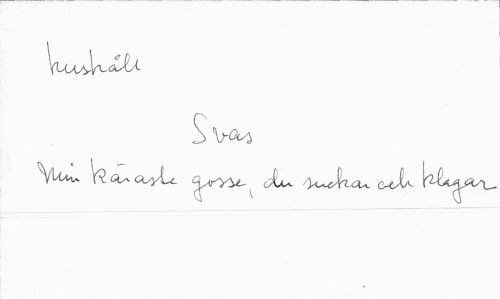 hushåll
Svas
Min käraste gosse, du suckar och klagar